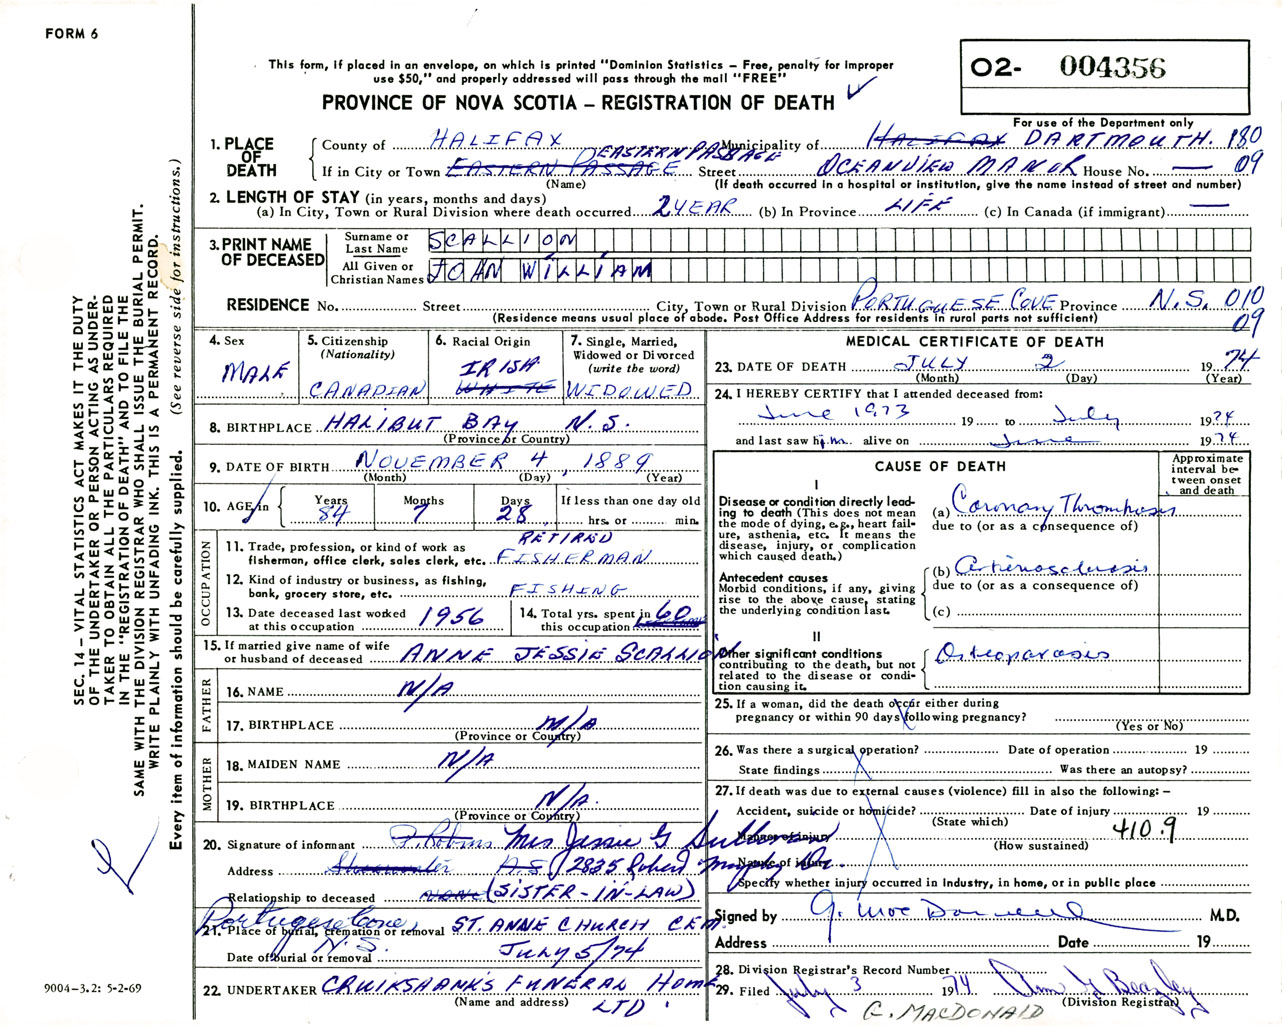 FORM 6
This form, if placed in an envelope, on which is printed "Dominion Statistics – Free, penalty for improper
use $50," and properly addressed will pass through the mail "FREE"
O2- 004356
PROVINCE OF NOVA SCOTIA – REGISTRATION OF DEATH
For use of the Department only
1. PLACE OF DEATH County of HALIFAX Municipality of HALIFAX DARTMOUTH. 180
EASTERN PASSAGE
If in City or Town EASTERN PASSAGE Street OCEANVIEW MANOR House No. — 09
(Name) (If death occurred in a hospital or institution, give the name instead of street and number)
2. LENGTH OF STAY (in years, months and days)
(a) In City, Town or Rural Division where death occurred 2 YEAR (b) In Province LIFE (c) In Canada (if immigrant) —
3. PRINT NAME OF DECEASED Surname or Last Name SCALLION
All Given or Christian Names JOHN WILLIAM
RESIDENCE No. Street City, Town or Rural Division PORTUGUESE COVE Province N.S. 010
(Residence means usual place of abode. Post Office Address for residents in rural parts not sufficient) 09
4. Sex MALE
5. Citizenship (Nationality) CANADIAN
6. Racial Origin IRISH WHITE
7. Single, Married, Widowed or Divorced (write the word) WIDOWED
8. BIRTHPLACE HALIBUT BAY N.S.
(Province or Country)
9. DATE OF BIRTH NOVEMBER 4, 1889
(Month) (Day) (Year)
10. AGE in Years 84 Months 7 Days 28 If less than one day old hrs. or min.
OCCUPATION
11. Trade, profession, or kind of work as fisherman, office clerk, sales clerk, etc. RETIRED FISHERMAN
12. Kind of industry or business, as fishing, bank, grocery store, etc. FISHING
13. Date deceased last worked at this occupation 1956
14. Total yrs. spent in this occupation 60
15. If married give name of wife or husband of deceased ANNE JESSIE SCALLION
FATHER
16. NAME N/A
17. BIRTHPLACE N/A
(Province or Country)
MOTHER
18. MAIDEN NAME N/A
19. BIRTHPLACE N/A.
(Province or Country)
20. Signature of informant P. Robins Mrs Jessie G Sullivan
Address Shearwater N.S. 2835 Robert Murphy Dr.
Relationship to deceased NONE (SISTER-IN-LAW)
Portugese Cove, N.S.
21. Place of burial, cremation or removal ST. ANNE CHURCH CEM.
Date of burial or removal JULY 5/74
22. UNDERTAKER CRUIKSHANK'S FUNERAL HOME LTD.
(Name and address)
MEDICAL CERTIFICATE OF DEATH
23. DATE OF DEATH JULY 2 1974
(Month) (Day) (Year)
24. I HEREBY CERTIFY that I attended deceased from:
June 1973 19 to July 1974
and last saw him alive on June 1974
CAUSE OF DEATH
Approximate interval between onset and death
I
Disease or condition directly leading to death (This does not mean the mode of dying, e.g., heart failure, asthenia, etc. It means the disease, injury, or complication which caused death.)
(a) Coronary Thrombosis
due to (or as a consequence of)
Antecedent causes
Morbid conditions, if any, giving rise to the above cause, stating the underlying condition last.
(b) Arteriosclerosis
due to (or as a consequence of)
(c)
II
Other significant conditions
contributing to the death, but not related to the disease or condition causing it.
Osteoporosis
25. If a woman, did the death occur either during pregnancy or within 90 days following pregnancy?
(Yes or No)
26. Was there a surgical operation? Date of operation 19
State findings Was there an autopsy?
27. If death was due to external causes (violence) fill in also the following: –
Accident, suicide or homicide? Date of injury 19
(State which) 410.9
Manner of injury (How sustained)
Nature of injury
Specify whether injury occurred in Industry, in home, or in public place
Signed by M.D.
Address Date 19
28. Division Registrar's Record Number
29. Filed July 3 1974
(Division Registrar)
G. MACDONALD
SEC. 14 – VITAL STATISTICS ACT MAKES IT THE DUTY
OF THE UNDERTAKER OR PERSON ACTING AS UNDER-
TAKER TO OBTAIN ALL THE PARTICULARS REQUIRED
IN THE "REGISTRATION OF DEATH" AND TO FILE THE
SAME WITH THE DIVISION REGISTRAR WHO SHALL ISSUE THE BURIAL PERMIT.
WRITE PLAINLY WITH UNFADING INK. THIS IS A PERMANENT RECORD.
Every item of information should be carefully supplied. (See reverse side for instructions.)
9004-3.2: 5-2-69